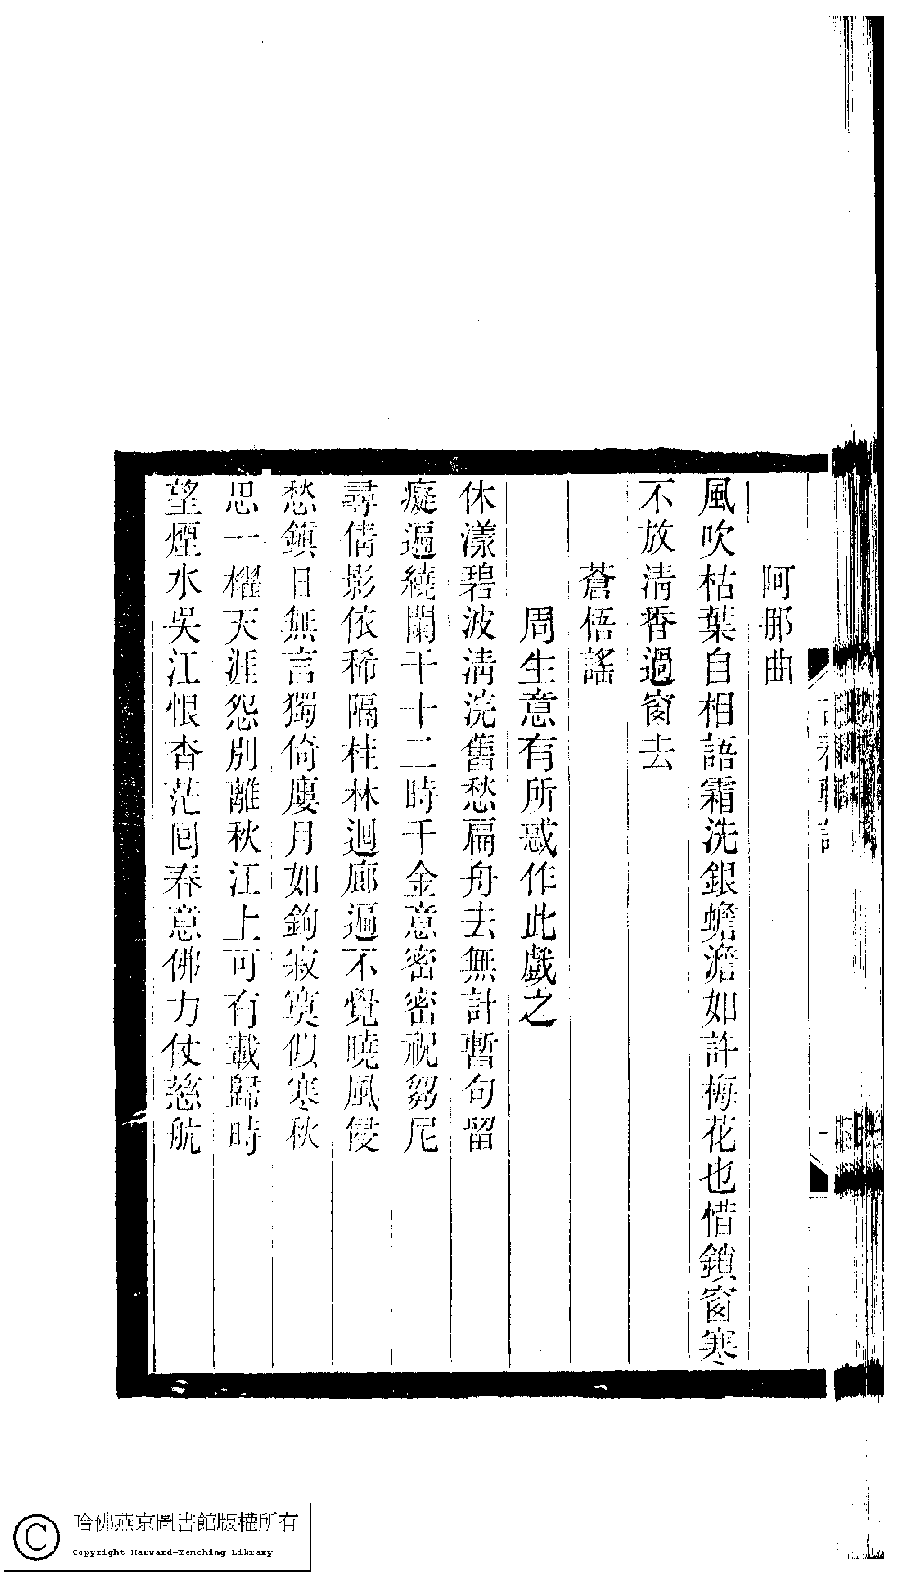 阿那曲
風吹枯葉自相語霜洗銀蟾澹如許梅花也惜鎖窗寒
不放清香過窗去
蒼梧謠
周生意有所惑作此戲之
休漾碧波清浣舊愁扁舟去無計暫句留
癡遍繞闌干十二時千金意密密祝芻尼
尋倩影依稀隔桂林迴廊遍不覺曉風侵
愁鎮日無言獨倚廔月如鉤寂寞似寒秋
思一櫂天涯怨別離秋江上可有載歸時
望煙水吳江恨杳茫囘春意佛力仗慈航
哈佛燕京圖書館版權所有
Copyright Harvard-Yenching Library